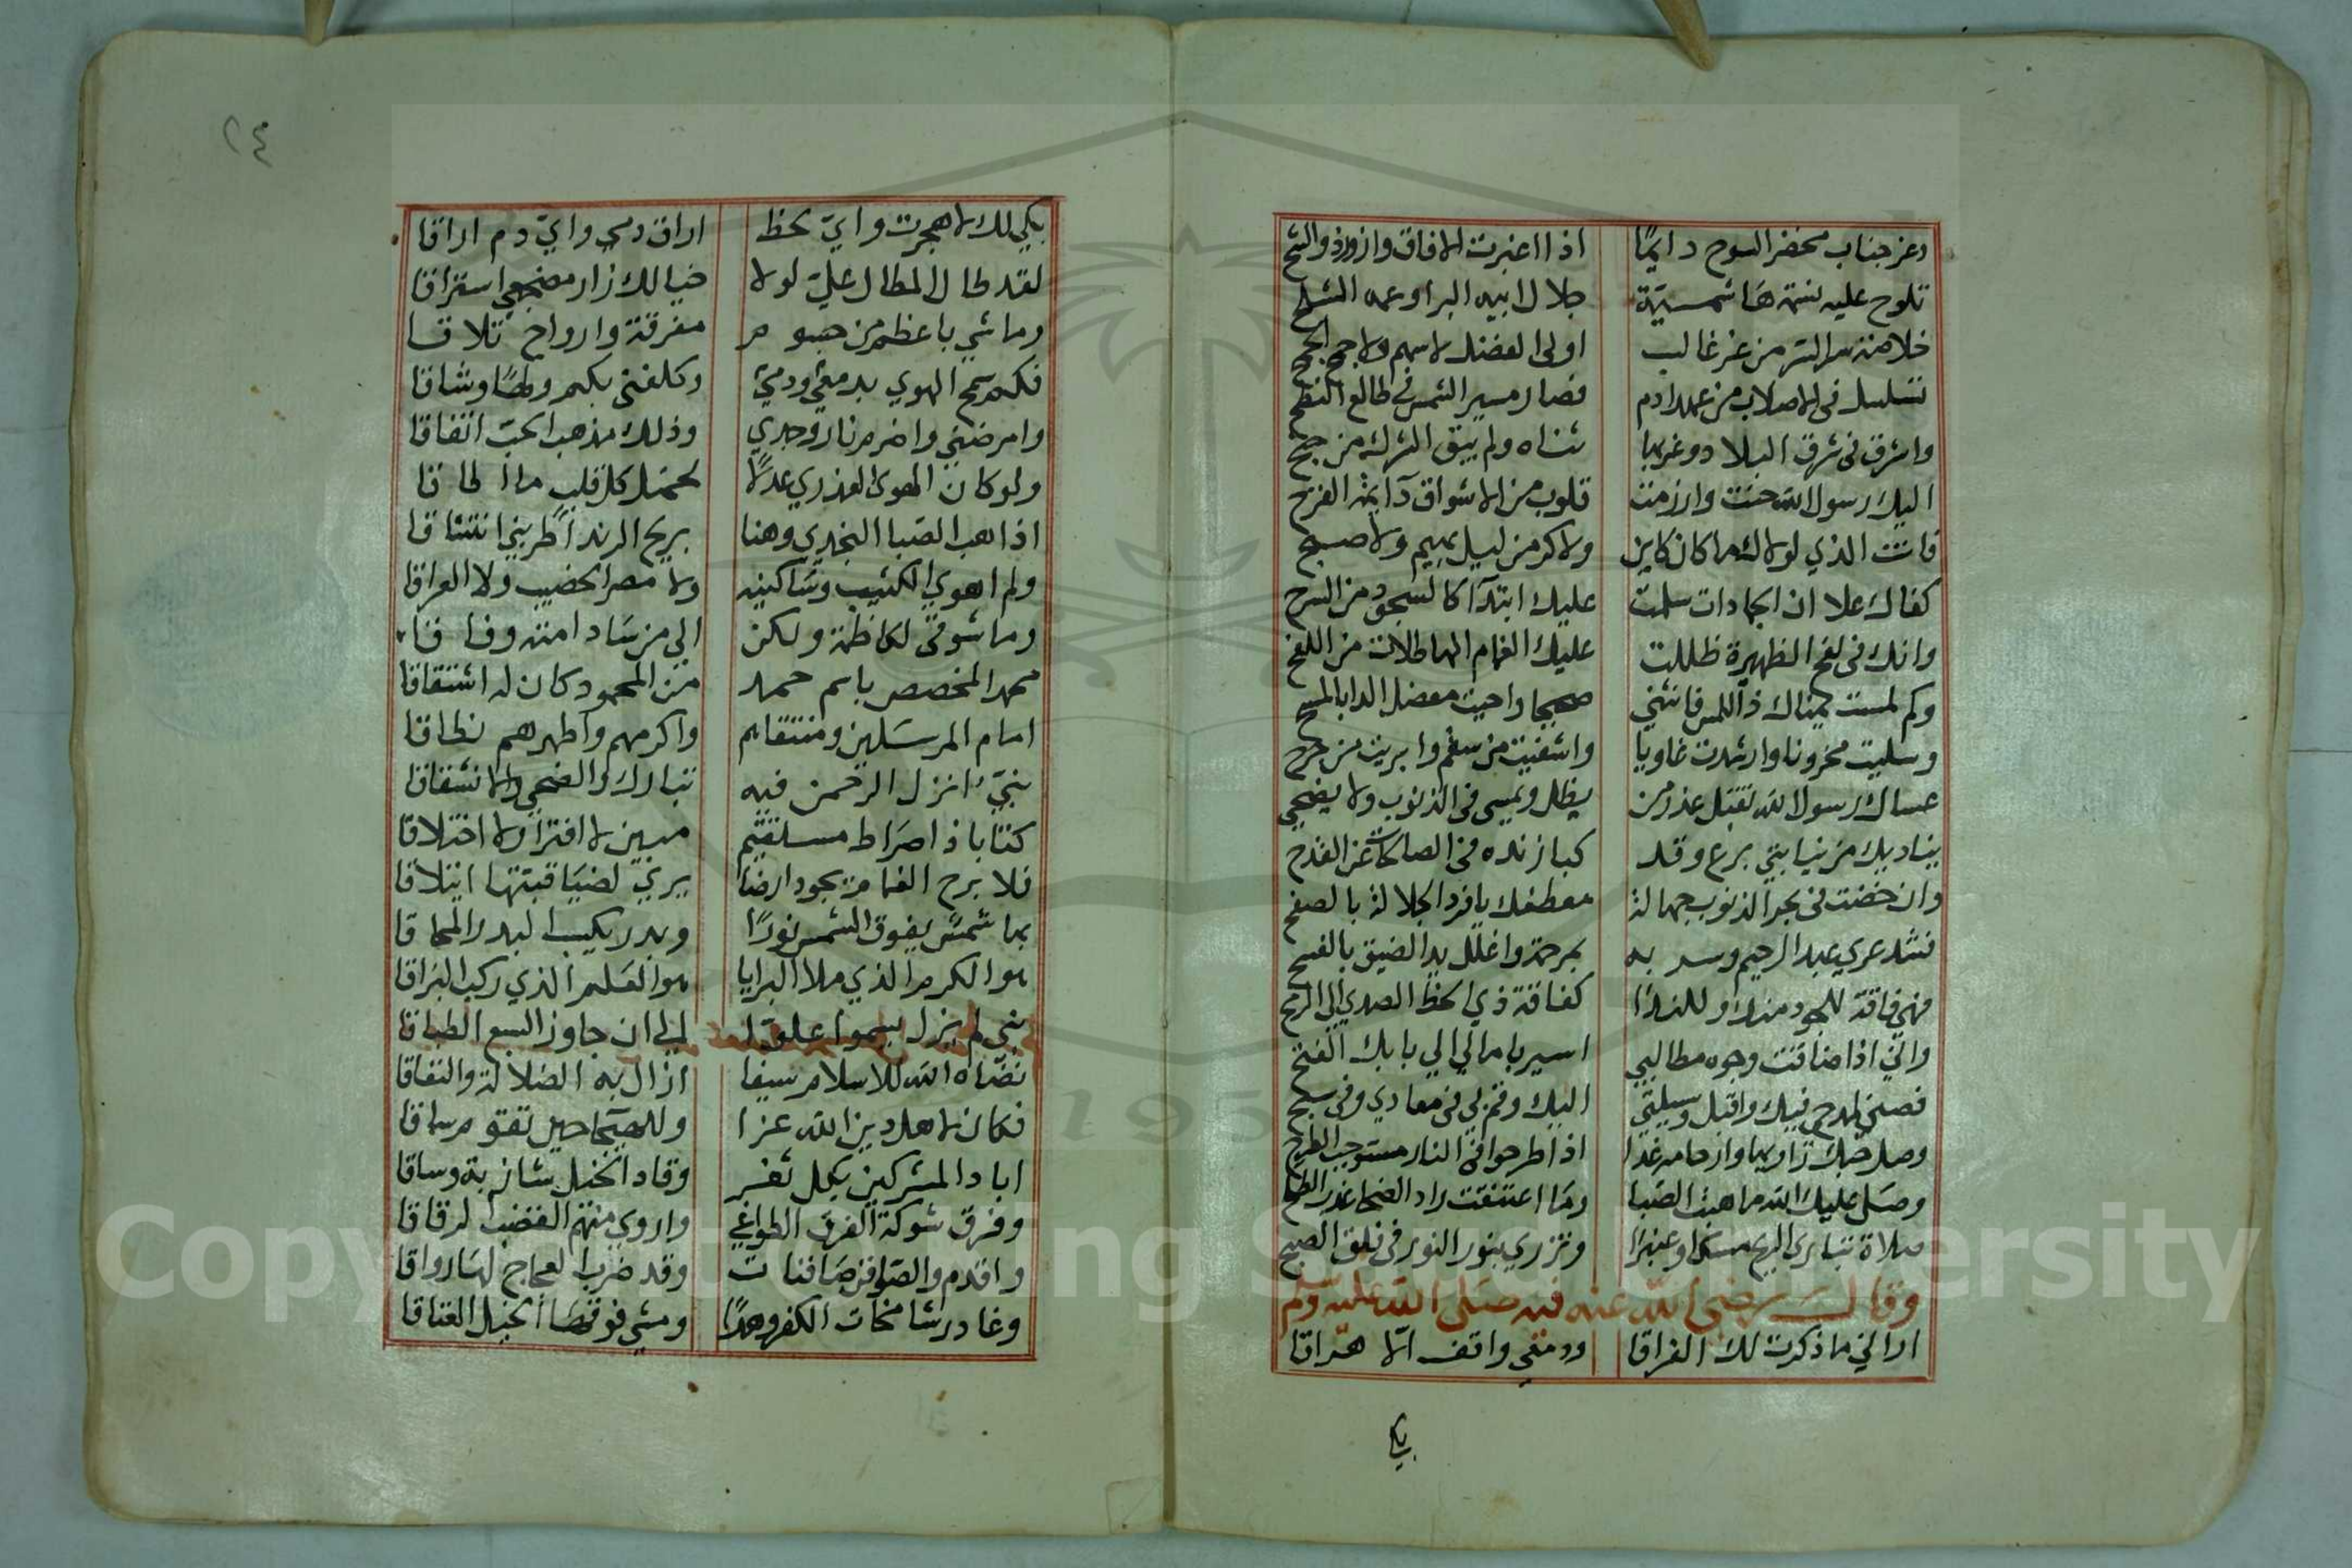 وعز جناب مخضر السوح دايمًا اذا اغبرت الافاق وازور ذو الشح
تلوح عليه نسمة هاشمية جلال ابيه البر او عمه السمح
خلاصة سر السر من عز غالب اولى الفضل لا سهم ولا جمح الجمح
تسلسل فى الاصلاب من عهد ادم فصار مسير الشمس فى طالع النطح
واشرق فى شرق البلاد وغربها سناه ولم يبق الشرك من جنح
اليك رسول الله حنت وارزمت قلوب من الاشواق دايمة القرح
فانت الذي لولاك ما كان كاين ولا كر من ليل بهيم ولا صبح
كفاك علا ان الجمادات سلمت عليك ابتدآ كالسجود من السرح
وانك فى لفح الظهيرة ظللت عليك الغمام الهاطلات من اللفح
وكم لمست يمناك ذا اللمس فانثني صحيحا واحيت معضل الدا بالمسح
وسليت محزونا وارشدت غاويا واشفيت من سقم وابريت من جرح
عساك رسول الله تقبل عذر من يظل ويمسي فى الذنوب ولا يضحي
يناديك من نيابتي برع وقد كبا زنده فى الصالحات عن القدح
وان خضت فى بحر الذنوب جهالة معطفك يا فرد الجلالة بالصفح
فشد عري عبد الرحيم وسر به بمرحمة واغلل يد الضيق بالفسح
فهي فاقة للجود منك وللندا كفاقة ذي الحظ الصدي الى الربح
واني اذا ضاقت وجوه مطالبي اسير بامالي الي بابك الفتح
فصنى لمدح فيك واقبل وسيلتي اليك وقم بي فى معادي وفى سبح
وصل حبك زاريها وارحامه غدا اذا طرحوا فى النار مستوجب الطرح
وصلى عليك الله ما هبت الصبا وما اعتنقت راد الضحا عذب الطلح
صلاة تبارى الريح مسكا وعنبرا وتزري بنور النور فى فلق الصبح
وقال رضى الله عنه فيه صلى الله عليه وسلم
اراني ما ذكرت لك الفراقا ودمعي واقف الا هراقا
بكي
٢٤
بكي لك لا هجرت واي لحظ اراق دمي واي دم اراقا
لقد طال المطال علي لولا خيالك زار مضجعي استراقا
وما شي باعظم من جسوم مفرقة وارواح تلاقا
فكم سمح الهوي بدمعي ودمي وكلفنى بكم وطاً وشاقا
وامرضني واضرم نار وجدي وذلك مذهب الحب اتفاقا
ولو كان الهوى العذري عدلاً لحمل كل قلب ما اطاقا
اذا هب الصبا النجدي وهنا بريح الرند اطربني انتشاقا
ولم اهوي الكثيب وساكنيه ولا مصر الخضيب ولا العراقا
وما شوقى لكاظمة ولكن الى من ساد امته وفاقا
محمد المخصص باسم حمد من المحمود كان له اشتقاقا
امام المرسلين ومنتقاهم واكرمهم واطهرهم نطاقا
نبيّ انزل الرحمن فيه تبارك والضحي والانشقاقا
كتابا ذا صراط مستقيم مبين لا افترا ولا اختلاقا
فلا برح الغمام يجود ارضا يري لضيا قبتها ايتلاقا
بها شمس يفوق الشمس نورًا وبدر يكسب البدر المحاقا
هو الكرم الذي ملا البرايا هو العلم الذي ركب البراقا
نبي لم يزل يسموا علوّا الي ان جاوز السبع الطباقا
نضاه الله للاسلام سيفا ازال به الضلالة والنفاقا
فكان لاهل دين الله عزا وللهيجا حين تقوم ساقا
اباد المشركين بكل ثغر وقاد الخيل شازبة وساقا
وفرق شوكة الفرق الطواغي واروي منهم القضب الرقاقا
واقدم والصوافن صافنات وقد ضرب العجاج لها رواقا
وغادر شامخات الكفر وهدًا ومشي فوقها الخيل العتاقا
Copyright © King Saud University
195